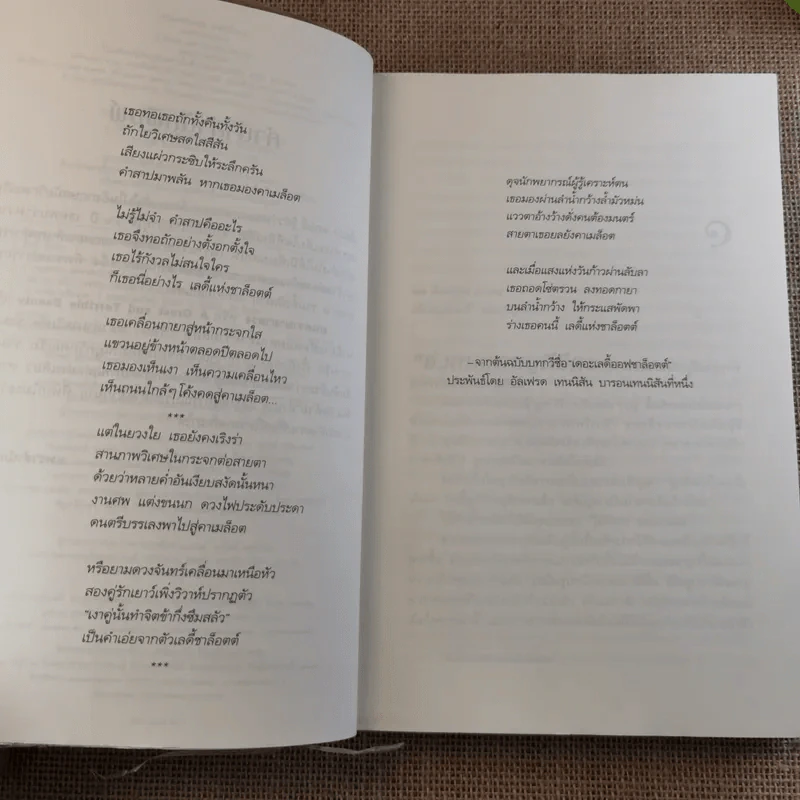 เธอทอเธอถักทั้งคืนทั้งวัน
ถักใยวิเศษสดใสสีสัน
เสียงแผ่วกระซิบให้ระลึกครัน
คำสาปมาพลัน หากเธอมองคาเมล็อต
ไม่รู้ไม่จำ คำสาปคืออะไร
เธอจึงทอถักอย่างตั้งอกตั้งใจ
เธอไร้กังวลไม่สนใจใคร
ก็เธอนี่อย่างไร เลดี้แห่งชาล็อตต์
เธอเคลื่อนกายาสู่หน้ากระจกใส
แขวนอยู่ข้างหน้าตลอดปีตลอดไป
เธอมองเห็นเงา เห็นความเคลื่อนไหว
เห็นถนนใกล้ๆ โค้งคดสู่คาเมล็อต...
***
แต่ในยวงใย เธอยังคงเริงร่า
สานภาพวิเศษในกระจกต่อสายตา
ด้วยว่าหลายค่ำอันเงียบสงัดนั้นหนา
งานศพ แต่งขนนก ดวงไฟประดับประดา
ดนตรีบรรเลงพาไปสู่คาเมล็อต
หรือยามดวงจันทร์เคลื่อนมาเหนือหัว
สองคู่รักเยาว์เพิ่งวิวาห์ปรากฏตัว
"เงาคู่นั้นทำจิตข้ากึ่งซึมสลัว"
เป็นคำเอ่ยจากตัวเลดี้ชาล็อตต์
***
ดุจนักพยากรณ์ผู้รู้เคราะห์ตน
เธอมองผ่านลำน้ำกว้างล้ำมัวหม่น
แววตาอ้างว้างดั่งคนต้องมนตร์
สายตาเธอยลยังคาเมล็อต
และเมื่อแสงแห่งวันก้าวผ่านลับลา
เธอถอดโซ่ตรวน ลงทอดกายา
บนลำน้ำกว้าง ให้กระแสพัดพา
ร่างเธอคนนี้ เลดี้แห่งชาล็อตต์
–จากต้นฉบับบทกวีชื่อ"เดอะเลดี้ออฟชาล็อตต์"
ประพันธ์โดย อัลเฟรด เทนนิสัน บารอนเทนนิสันที่หนึ่ง